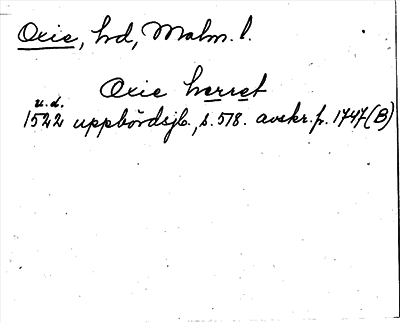 Oxie, hd, Malm. l.
Oxie herret
u.d.
1522 uppbördsjb., s. 518. avskr. fr. 1747 (B)